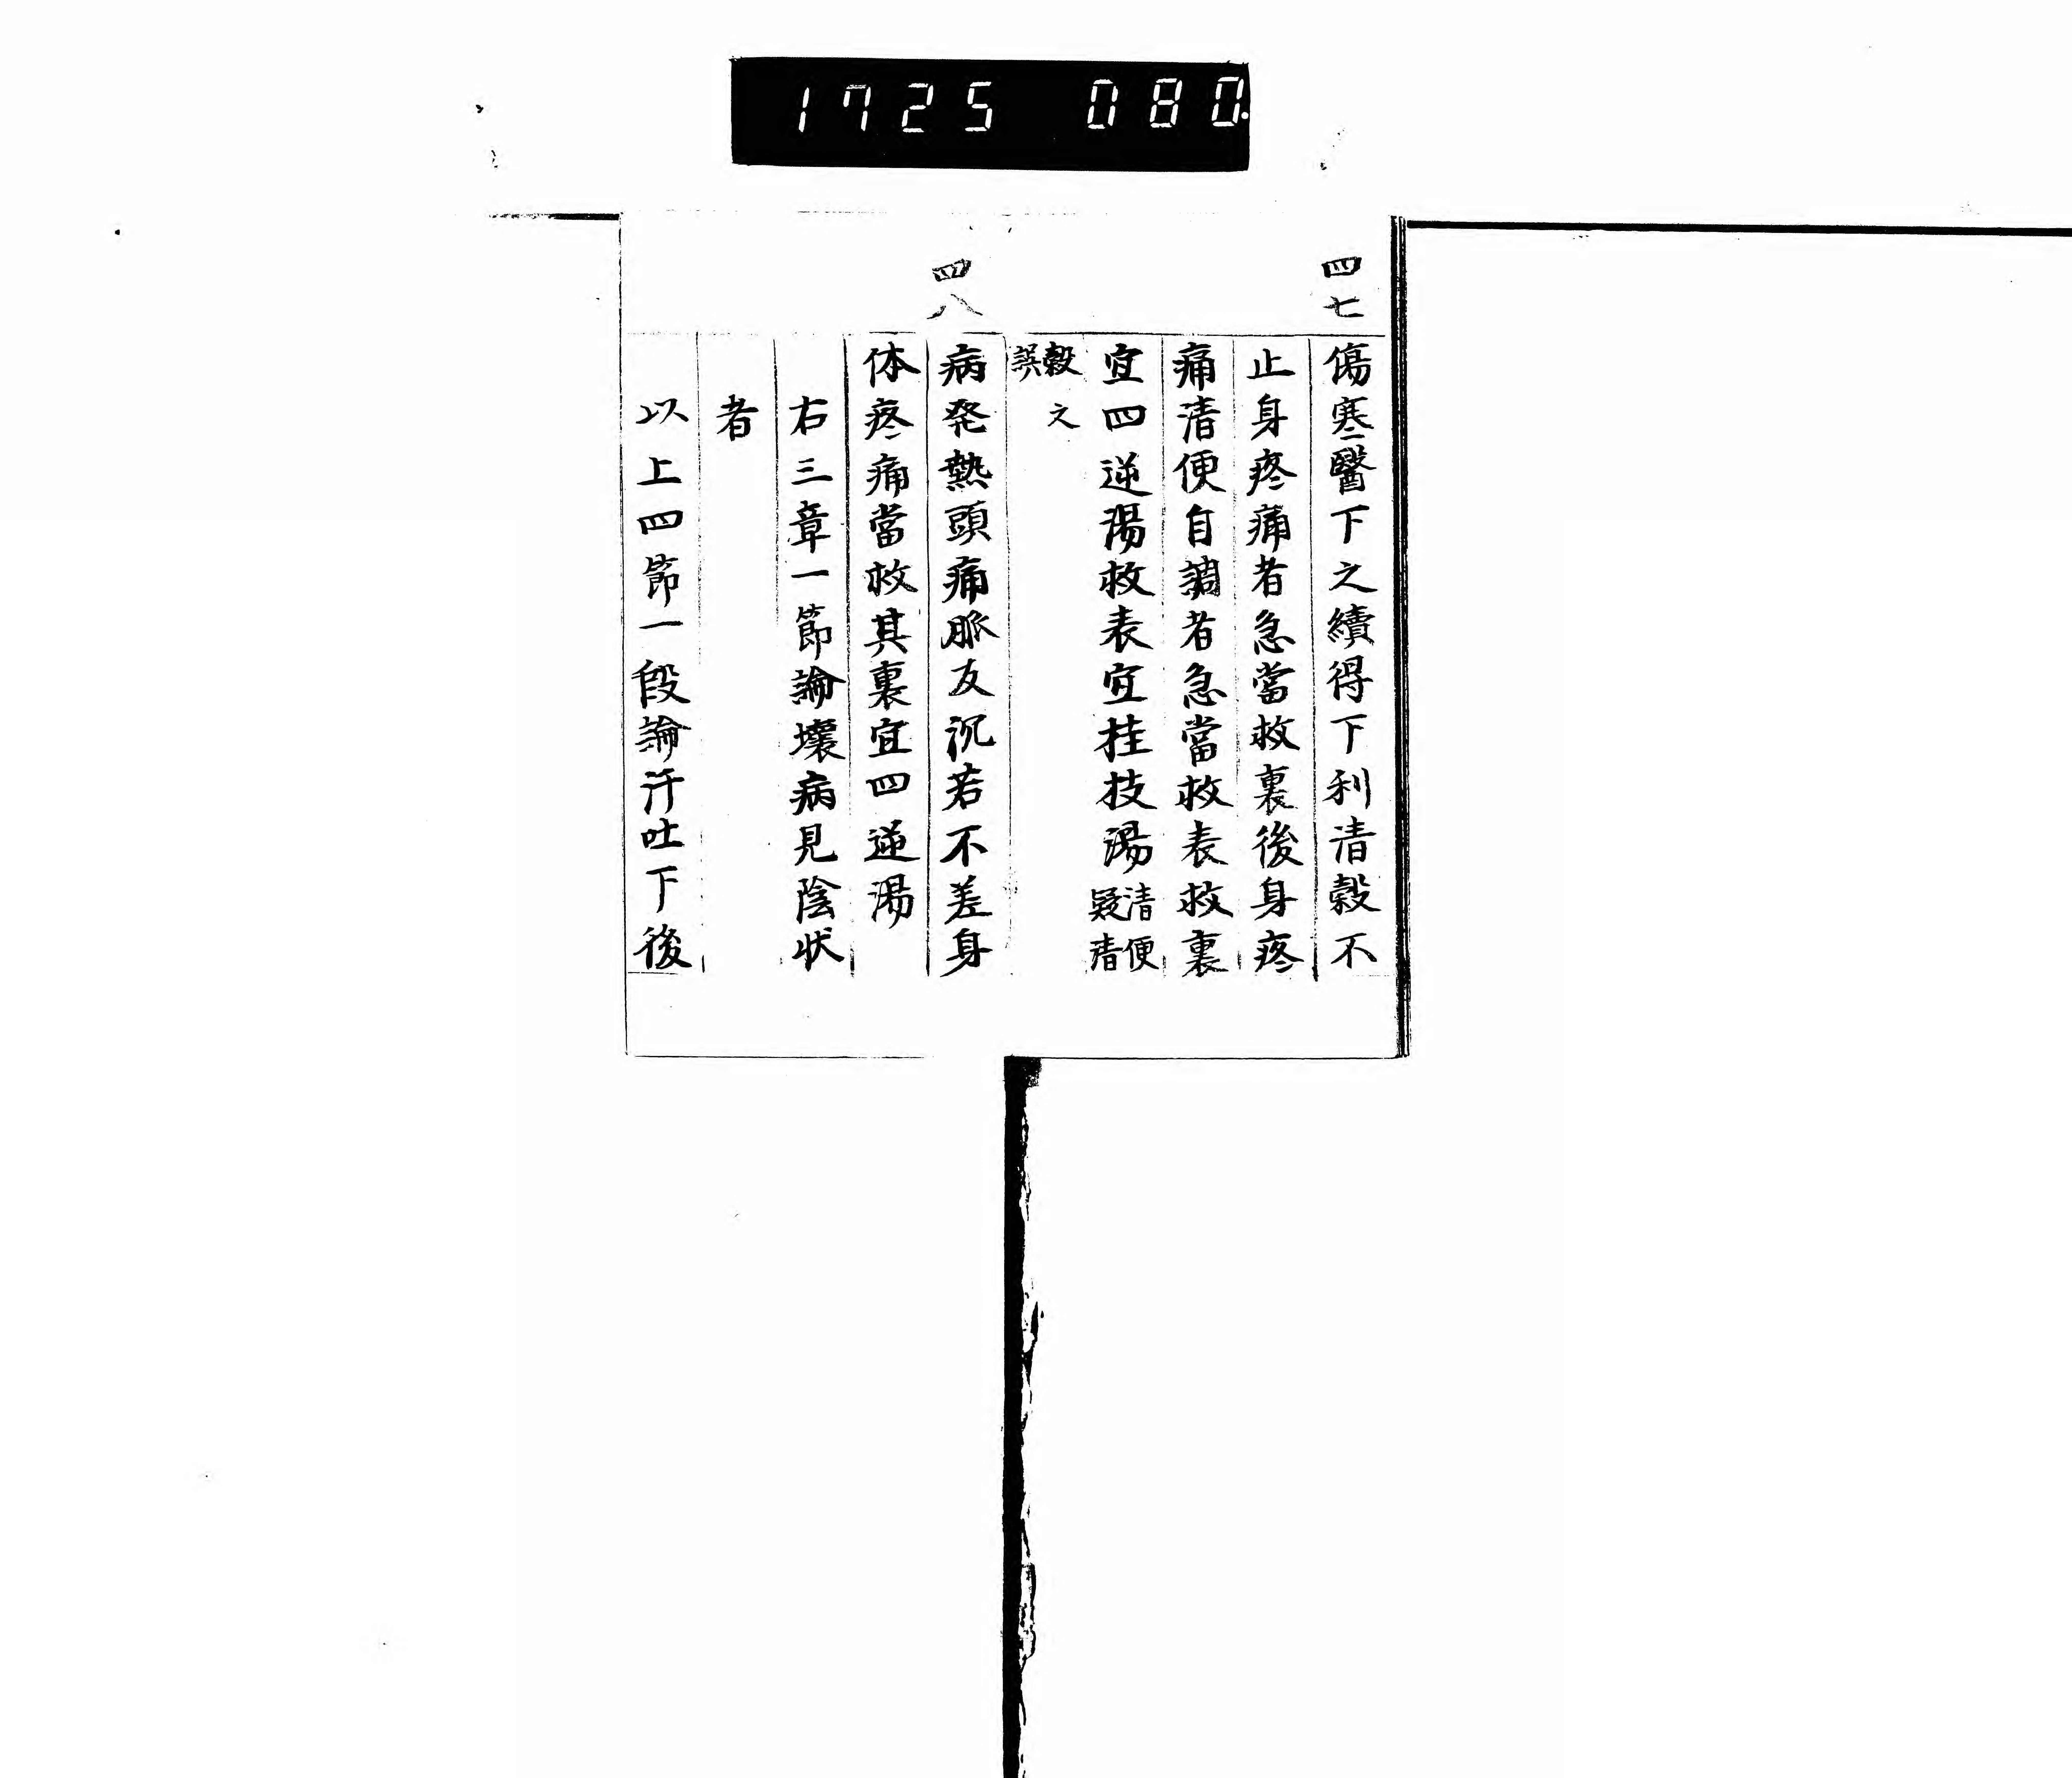 1725 080.
四七
傷寒醫下之續得下利清穀不
止身疼痛者急當救裏後身疼
痛清便自調者急當救表救裏
宜四逆湯救表宜桂枝湯清便疑清
穀之誤
四八
病発熱頭痛脈反沉若不差身
体疼痛當救其裏宜四逆湯
右三章一節論壞病見陰状
者
以上四節一段論汗吐下後